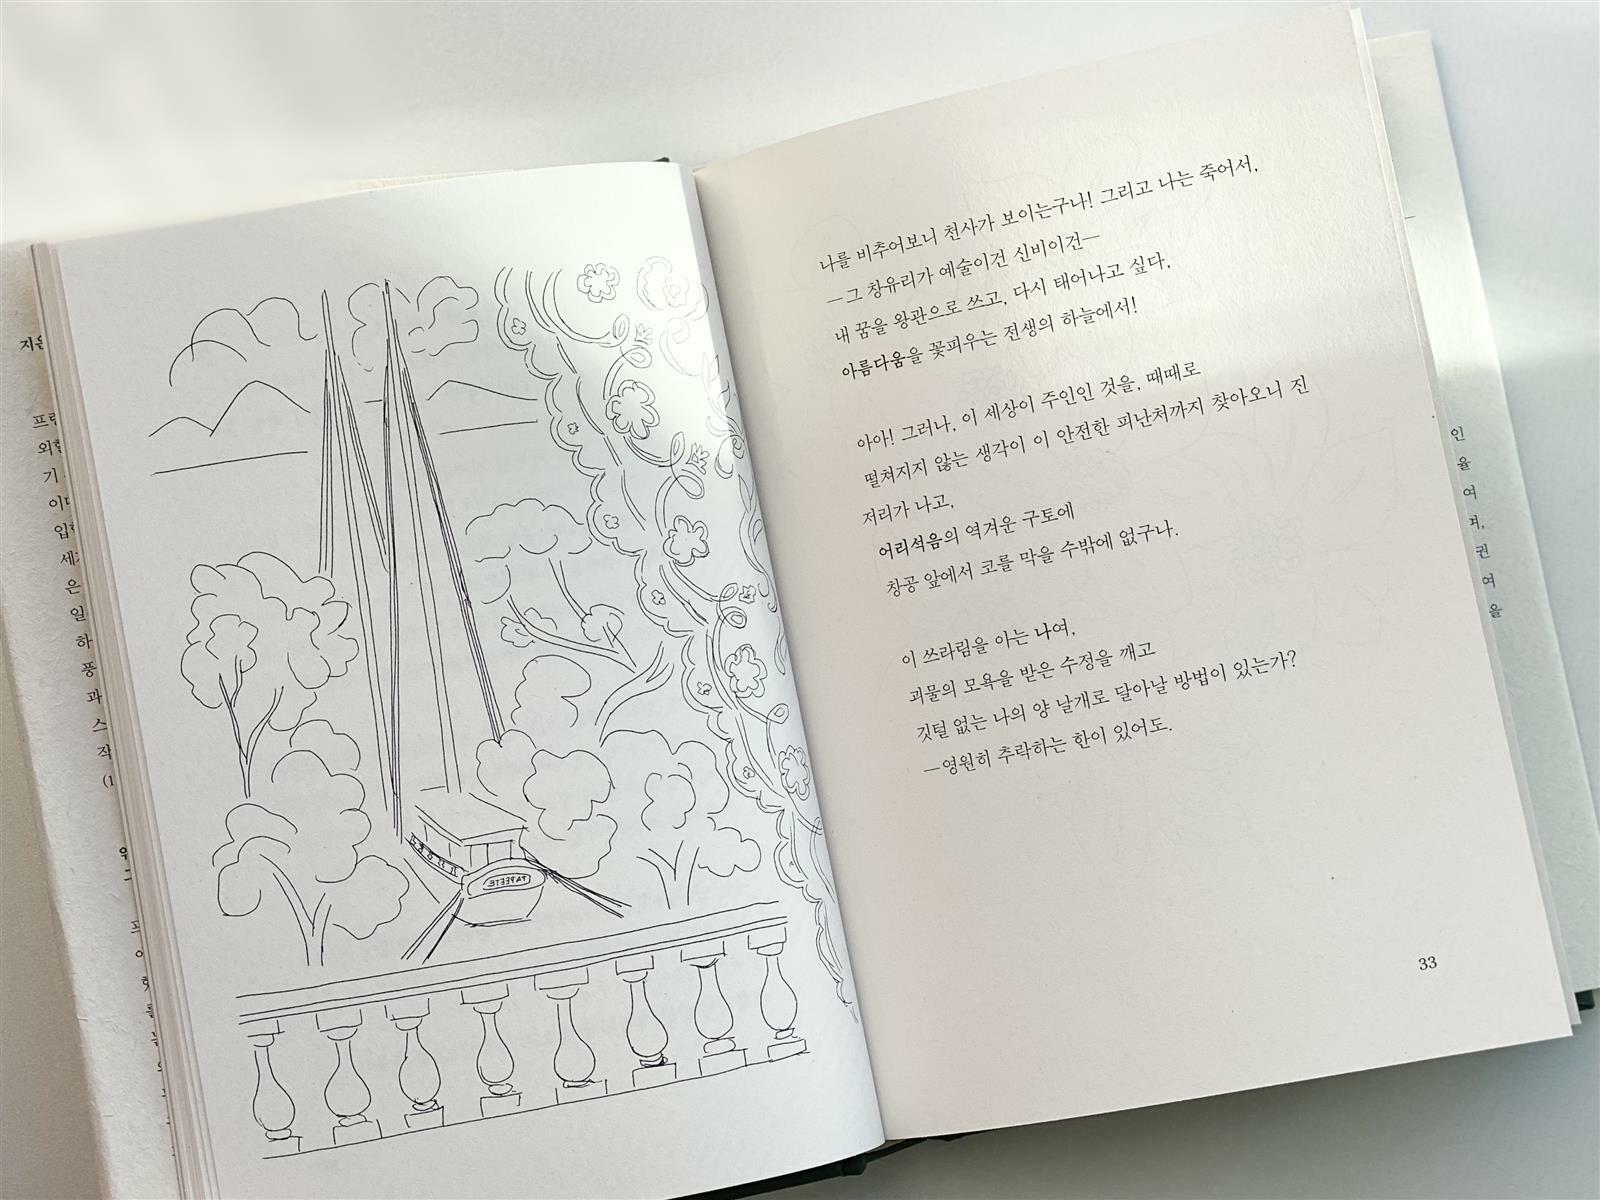 지은
프랑
외할
기
이다
입학
세기
은
일
하
풍
과
스
작
(1
PAPEETE
나를 비추어보니 천사가 보이는구나! 그리고 나는 죽어서,
—그 창유리가 예술이건 신비이건—
내 꿈을 왕관으로 쓰고, 다시 태어나고 싶다,
아름다움을 꽃피우는 전생의 하늘에서!
아아! 그러나, 이 세상이 주인인 것을, 때때로
떨쳐지지 않는 생각이 이 안전한 피난처까지 찾아오니 진
저리가 나고,
어리석음의 역겨운 구토에
창공 앞에서 코를 막을 수밖에 없구나.
이 쓰라림을 아는 나여,
괴물의 모욕을 받은 수정을 깨고
깃털 없는 나의 양 날개로 달아날 방법이 있는가?
—영원히 추락하는 한이 있어도.
33
인
율
여
며,
권
여
을